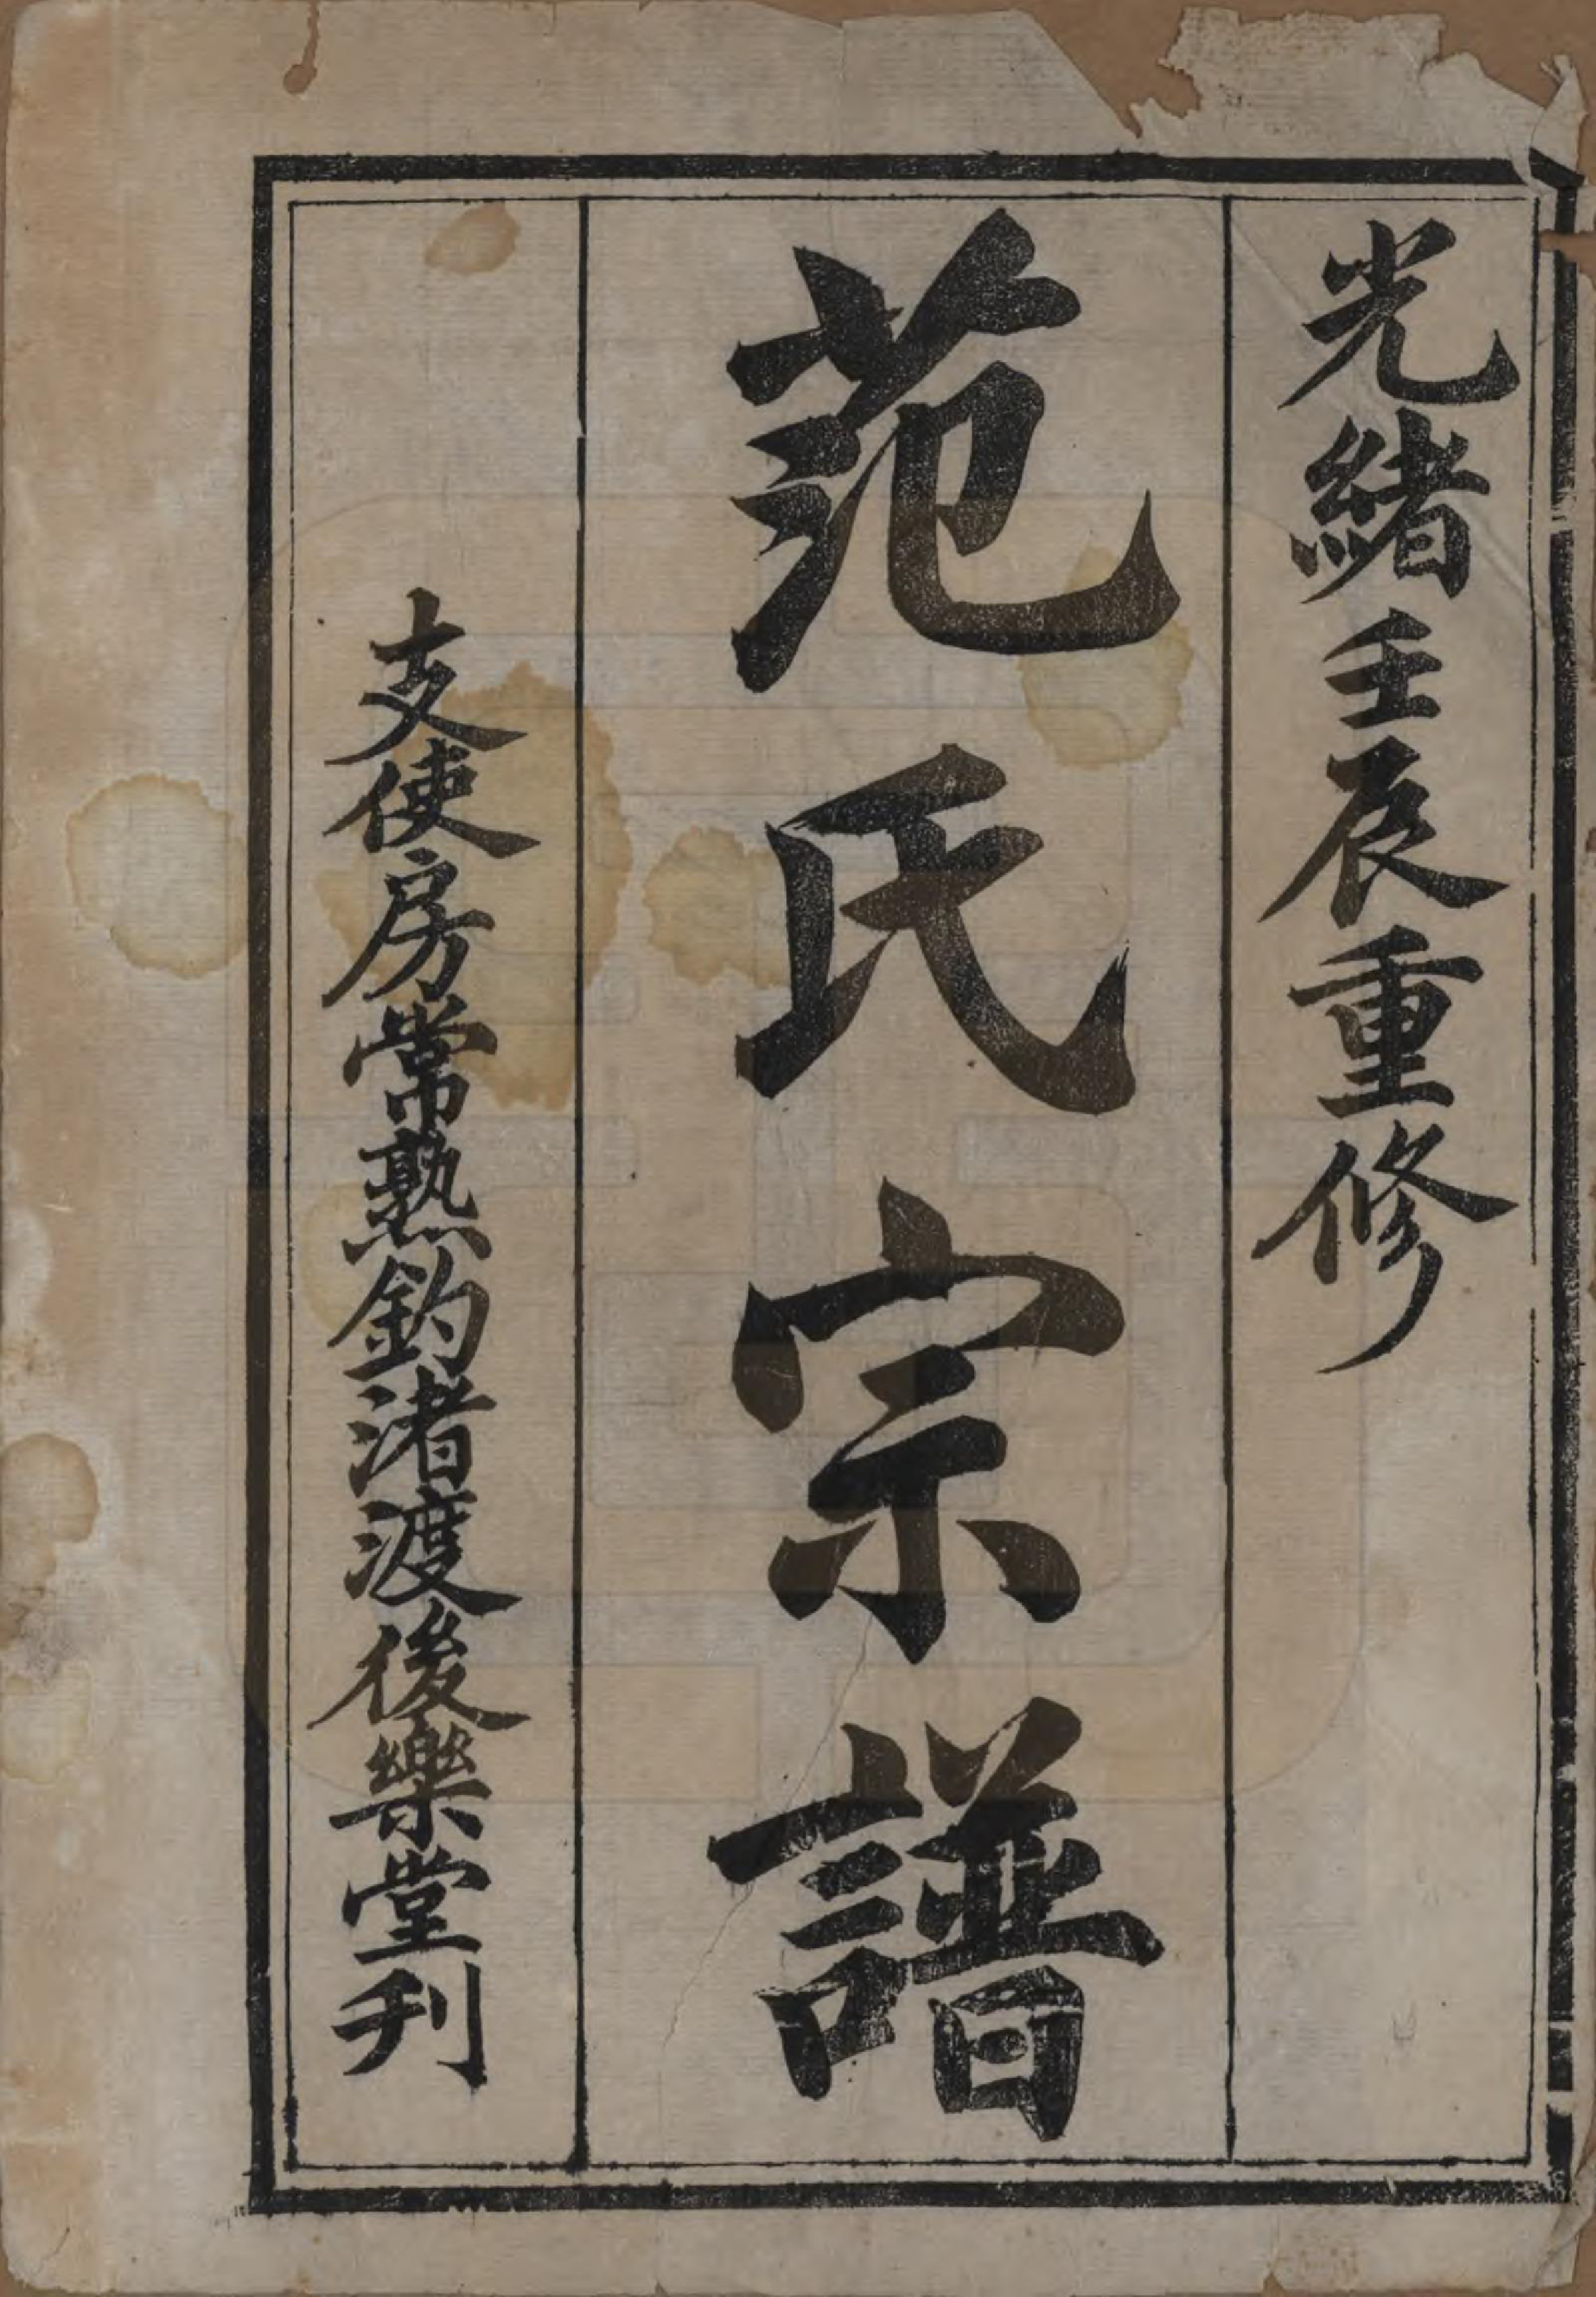 光緒壬辰重修
范氏宗譜
支使房常熟釣渚渡後樂堂刋